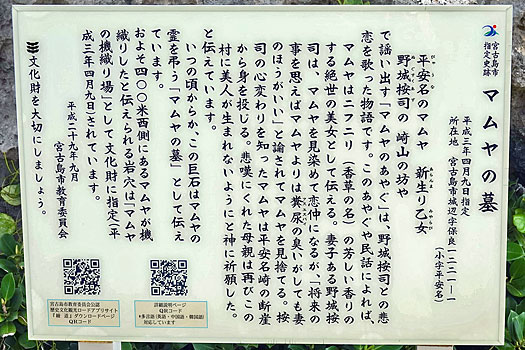 宮古島市
指定史跡
マムヤの墓
平成三年四月九日指定
所在地 宮古島市城辺字保良一二二一―一
(小字平安名)
平安名のマムヤ 新生り乙女
野城按司の 崎山の坊や
で謡い出す「マムヤのあやぐ」は、野城按司との悲
恋を歌った物語です。このあやぐや民話によれば、
マムヤはニフニリ(香草の名)の芳しい香りの
する絶世の美女として伝える。妻子ある野城按
司は、マムヤを見染めて恋仲になるが、「将来の
事を思えばマムヤよりは糞尿の臭いがしても妻
のほうがいい」と諭されてマムヤを見捨てる。按
司の心変わりを知ったマムヤは平安名崎の断崖
から身を投じる。悲嘆にくれた母親は再びこの
村に美人が生まれないようにと神に祈願した。
と伝えています。
いつの頃からか、この巨石はマムヤの
霊を弔う「マムヤの墓」として伝え
ています。
およそ四〇〇米西側にあるマムヤが機
織りしたと伝えられる岩穴は「マムヤ
の機織り場」として文化財に指定(平
成三年四月九日)されています。
平成二十九年九月
宮古島市教育委員会
文化財を大切にしましょう。
宮古島市教育委員会公認
歴史文化観光ロードアプリサイト
「綾道」ダウンロードページ
QRコード
詳細説明ページ
QRコード
*多言語(英語・中国語・韓国語)
対応しています